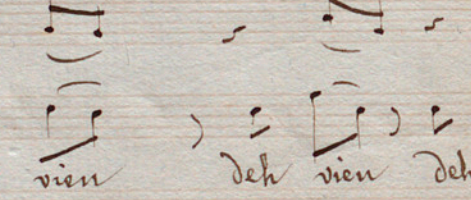 vien deh vien deh